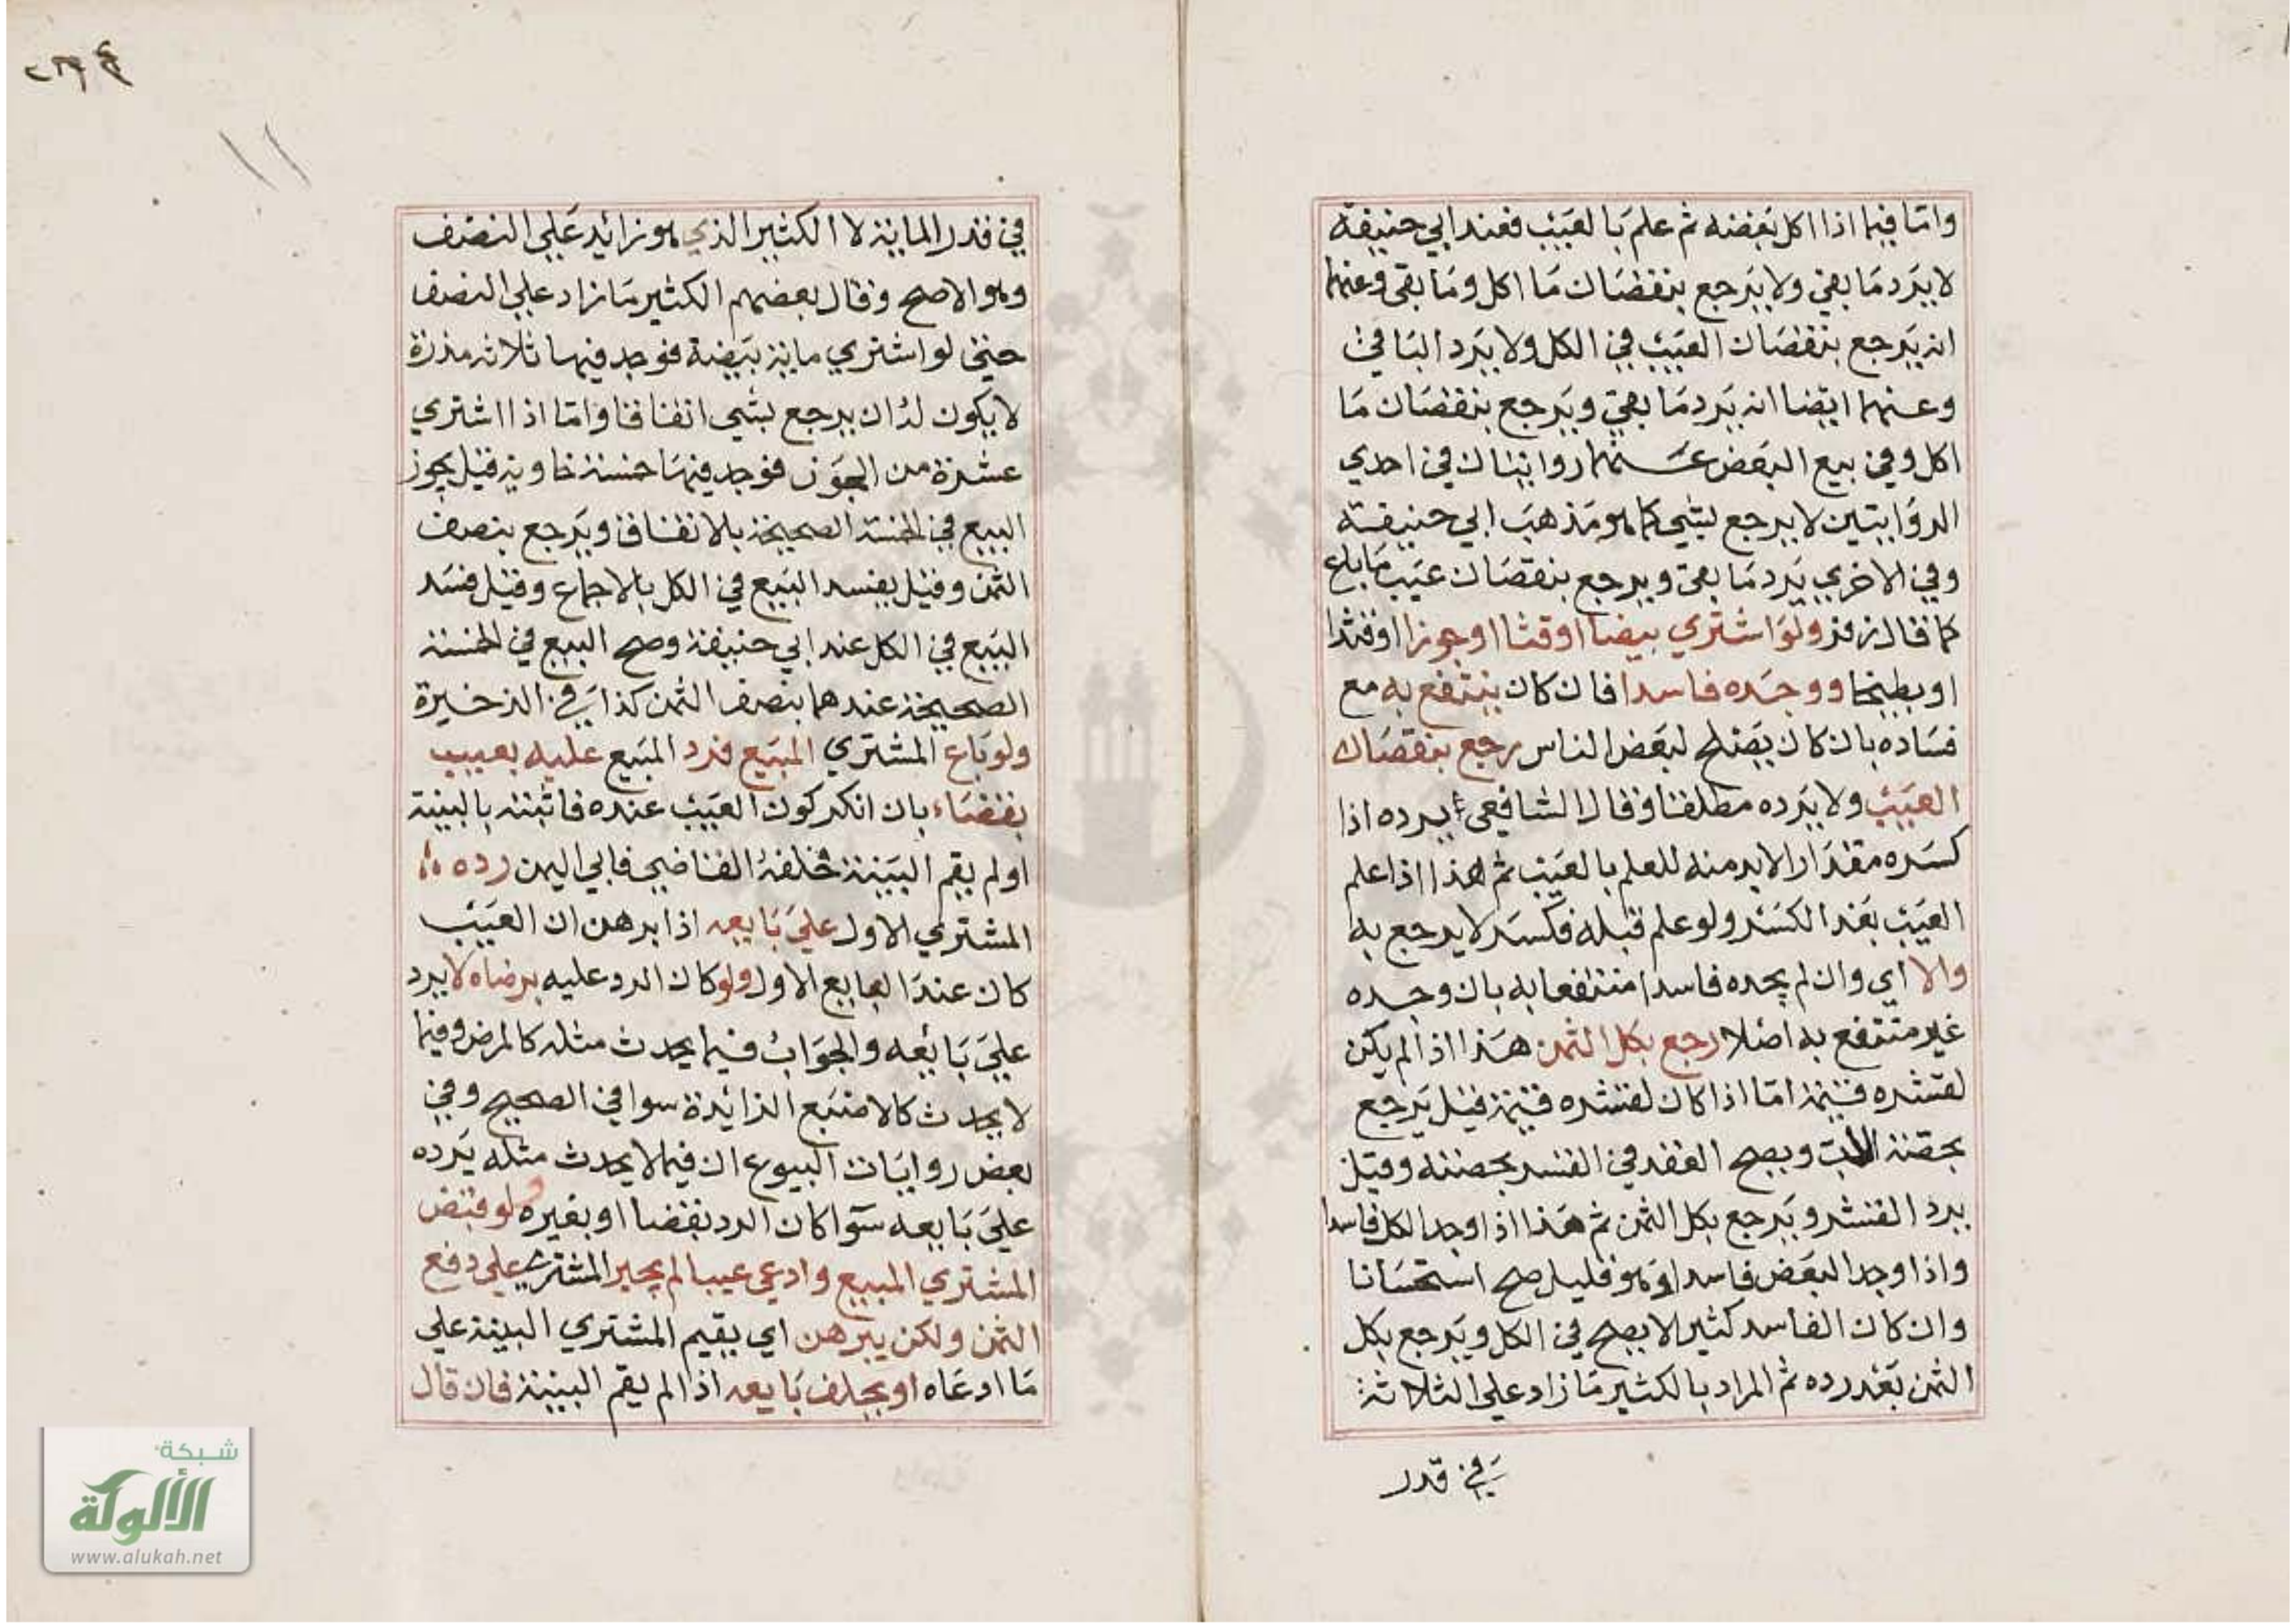 واما فيما اذا اكل بعضه ثم علم بالعيب فعند ابي حنيفة
لا يرد ما بقي ولا يرجع بنقصان ما اكل وما بقي وعنهما
انه يرجع بنقصان العيب في الكل ولا يرد الباقي
وعنهما ايضا انه يرد ما بقي ويرجع بنقصان ما
اكل وفي بيع البعض عنهما روايتان في احدي
الروايتين لا يرجع بشي كما هو مذهب ابي حنيفة
وفي الاخري يرد ما بقي ويرجع بنقصان عيب ما باع
كما قال زفر ولو اشتري بيضا او قثا او جوزا او قثدا
او بطيخا ووجده فاسدا فان كان ينتفع به مع
فساده بان كان يصلح لبعض الناس رجع بنقصان
العيب ولا يرده مطلقا وقال الشافعي يرده اذا
كسره مقدارا لابد منه للعلم بالعيب ثم هذا اذا علم
العيب بعد الكسر ولو علم قبله فكسر لا يرجع به
والا اي وان لم يجده فاسدا منتفعا به بان وجده
غير منتفع به اصلا رجع بكل الثمن هذا اذا لم يكن
لقشره قيمة اما اذا كان لقشره قيمة قيل يرجع
بحصة اللب ويصح العقد في القشر بحصته وقيل
يرد القشر ويرجع بكل الثمن ثم هذا اذا وجد الكل فاسدا
واذا وجد البعض فاسدا وهو قليل صح استحسانا
وان كان الفاسد كثيرا لا يصح في الكل ويرجع بكل
الثمن بعد رده ثم المراد بالكثير ما زاد علي الثلاثة
في قدر
٢٣٤
١١
في قدر الماية لا الكثير الذي هو زائد علي النصف
وهو الاصح وقال بعضهم الكثير ما زاد علي النصف
حتي لو اشتري ماية بيضة فوجد فيها ثلاثة مذرة
لا يكون له ان يرجع بشي اتفاقا واما اذا اشتري
عشرة من الجوز فوجد فيها خمسة خاوية قيل يجوز
البيع في الخمسة الصحيحة بالاتفاق ويرجع بنصف
الثمن وقيل يفسد البيع في الكل بالاجماع وقيل فسد
البيع في الكل عند ابي حنيفة وصح البيع في الخمسة
الصحيحة عندهما بنصف الثمن كذا في الذخيرة
ولو باع المشتري المبيع فرد المبيع عليه بعيب
بقضاء بان انكر كون العيب عنده فاثبته بالبينة
او لم يقم البينة فحلفه القاضي فابي اليمين رده
المشتري الاول علي بايعه اذا برهن ان العيب
كان عند البايع الاول ولو كان الرد عليه برضاه لا يرد
علي بايعه والجواب فيما يحدث مثله كالمرض وفيما
لا يحدث كالاصبع الزائدة سوا في الصحيح وفي
بعض روايات البيوع ان فيما لا يحدث مثله يرده
علي بايعه سوا كان الرد بقضا او بغيره ولو قبض
المشتري المبيع وادعي عيبا لم يجبر المشتري علي دفع
الثمن ولكن يبرهن اي يقيم المشتري البينة علي
ما ادعاه او يحلف بايعه اذا لم يقم البينة فان قال
شبكة
الألوكة
www.alukah.net